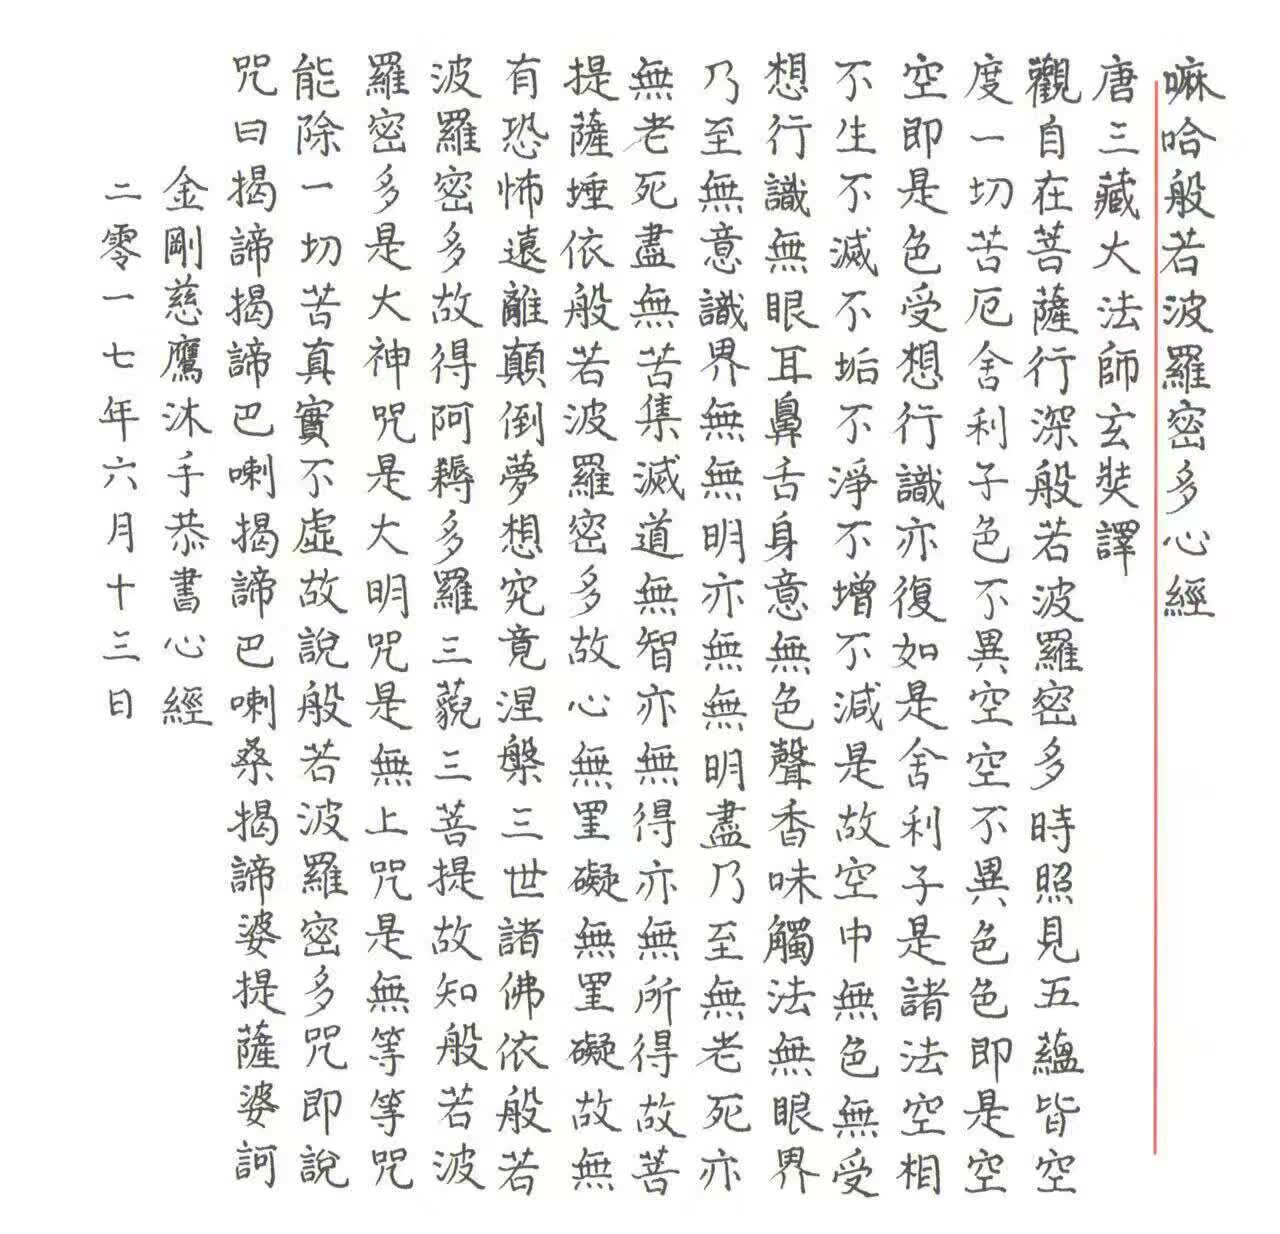 嘛哈般若波羅密多心經
唐三藏大法師玄奘譯
觀自在菩薩行深般若波羅密多時照見五蘊皆空
度一切苦厄舍利子色不異空空不異色色即是空
空即是色受想行識亦復如是舍利子是諸法空相
不生不滅不垢不淨不增不減是故空中無色無受
想行識無眼耳鼻舌身意無色聲香味觸法無眼界
乃至無意識界無無明亦無無明盡乃至無老死亦
無老死盡無苦集滅道無智亦無得亦無所得故菩
提薩埵依般若波羅密多故心無罣礙無罣礙故無
有恐怖遠離顛倒夢想究竟涅槃三世諸佛依般若
波羅密多故得阿耨多羅三藐三菩提故知般若波
羅密多是大神咒是大明咒是無上咒是無等等咒
能除一切苦真實不虛故說般若波羅密多咒即說
咒曰揭諦揭諦巴喇揭諦巴喇桑揭諦婆提薩婆訶
金剛慈鷹沐手恭書心經
二零一七年六月十三日